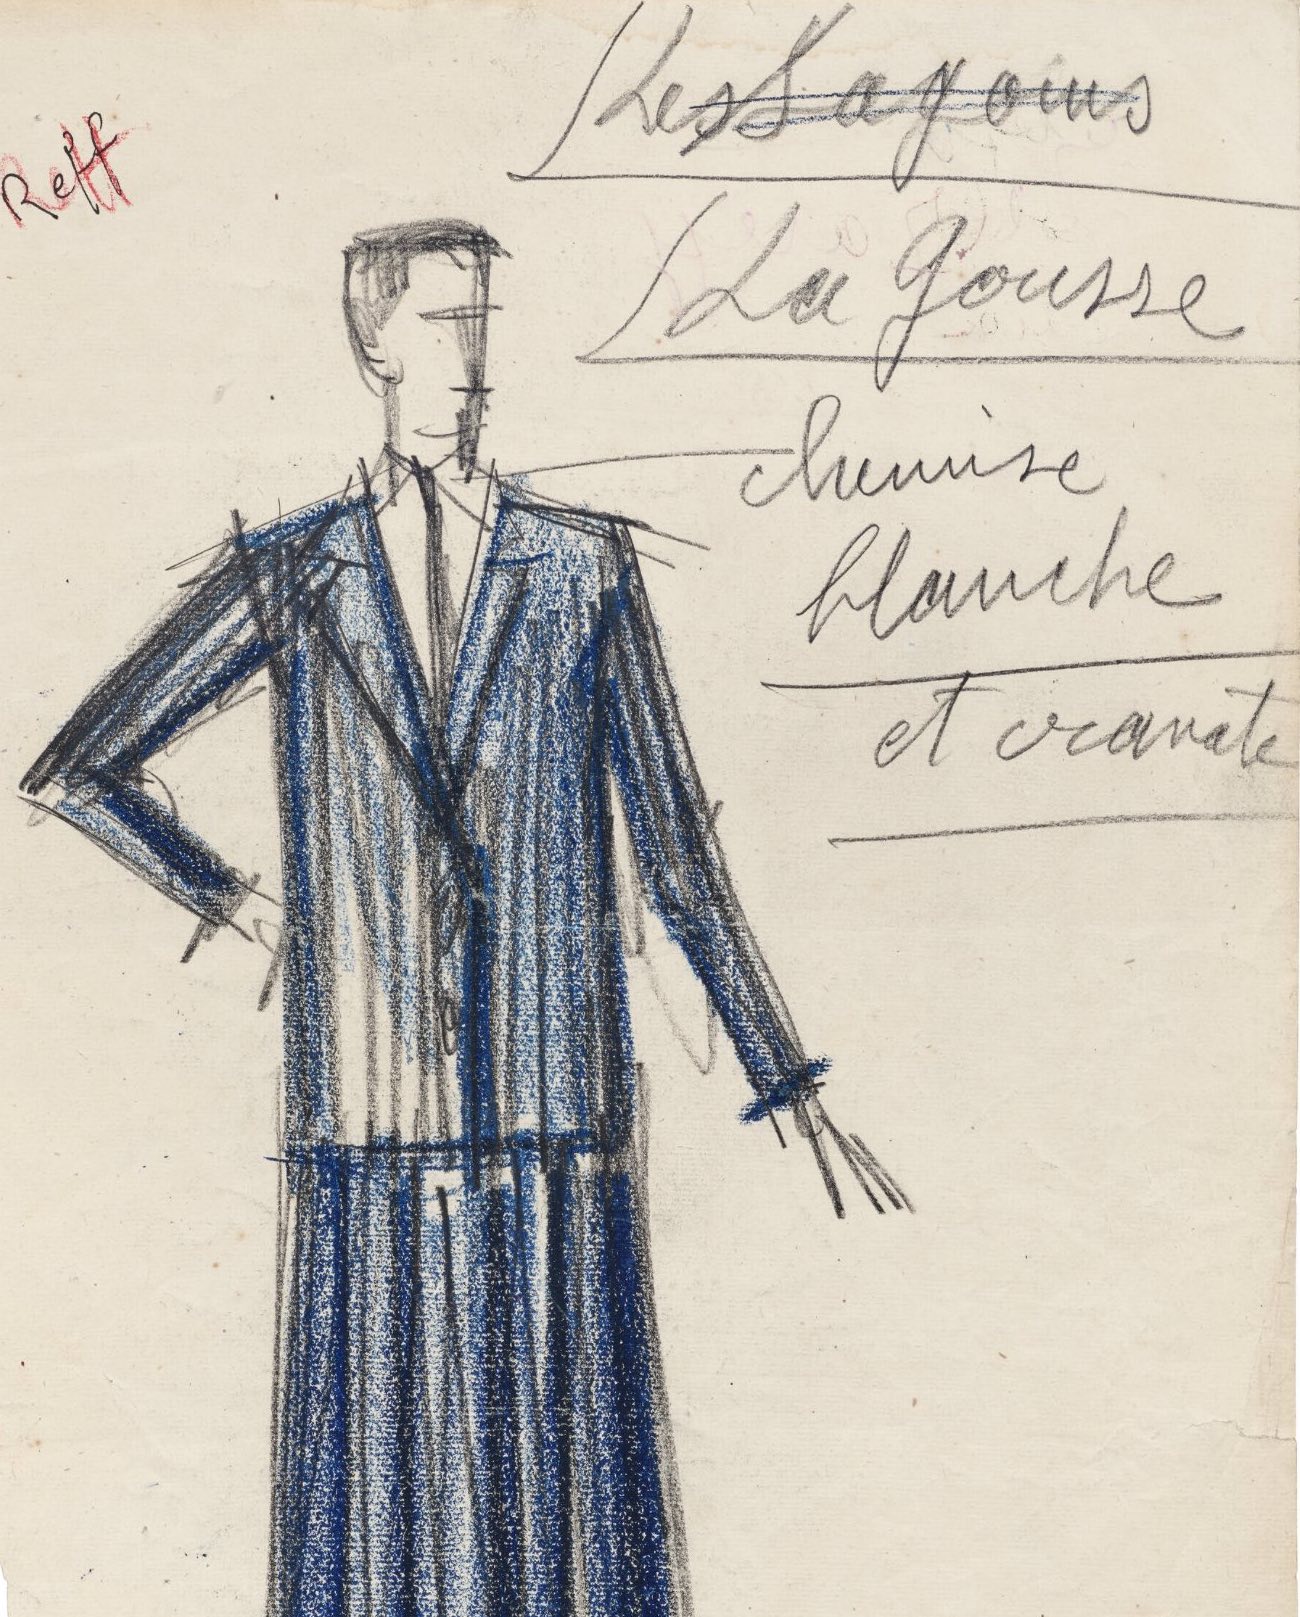 Reff
Les Sagouins
La Gousse
chemise
blanche
et cravate